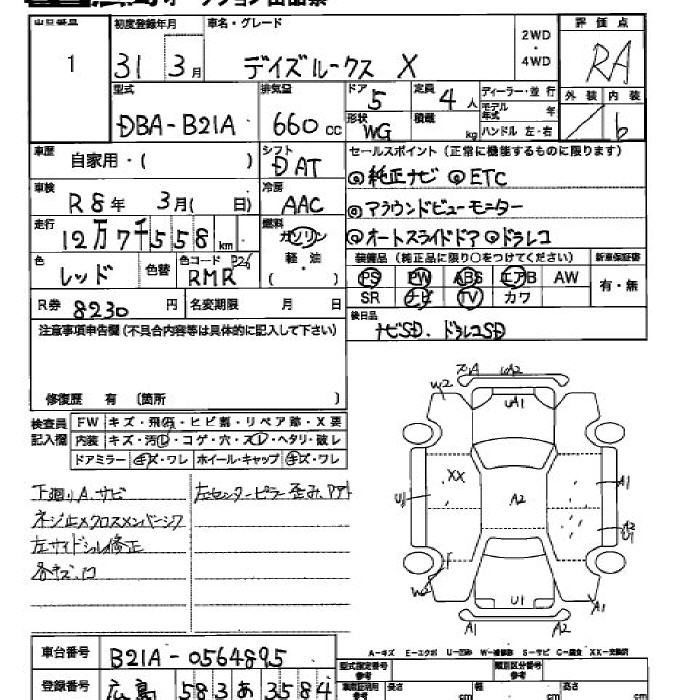 オークション出品票
出品番号 初度登録年月 車名・グレード 2WD・4WD 評価点
1 31 3月 デイズルークス X RA
型式 排気量 ドア 5 定員 4人 ディーラー・並行 外装 内装
DBA-B21A 660cc 形状 WG 積載 kg モデル年式 年 b
ハンドル 左・右
車歴 自家用・( ) シフト DAT セールスポイント (正常に機能するものに限ります)
◎純正ナビ ◎ETC
車検 R8年 3月( 日) 冷房 AAC
◎アラウンドビューモニター
走行 12万7千558km 燃料 ガソリン 軽・油 ( )
◎オートスライドドア ◎ドラレコ
色 レッド 色替 色コード RMR P26
装備品 (純正品に限り○をつけてください) 新車保証書
PS PW ABS エアB AW 有・無
SR ナビ TV カワ
R券 8230円 名変期限 月 日
後日品
ナビSD. ドラレコSD
注意事項申告欄 (不具合内容等は具体的に記入して下さい)
修復歴 有 〔箇所 〕
検査員記入欄 FW キズ・飛石・ヒビ割・リペア跡・X要
内装 キズ・汚レ・コゲ・穴・スレ・ヘタリ・破レ
ドアミラー キズ・ワレ ホイール・キャップ キズ・ワレ
下廻りA.サビ 左センターピラー歪み,アト
ネジ止メクロスメンバーシワ
左サイドシル修正
各キズ.凹
A2
W2 UA1
XX
U1 A2 A1
A2
U1
W2 U1 A1
A1 A2
A-キズ E-エクボ U-凹み W-補修跡 S-サビ C-腐食 XX-交換済
車台番号 B21A-0564895
型式指定番号 参考 類別区分番号 参考
登録番号 広島 583あ3584
長さ cm 幅 cm 高さ cm